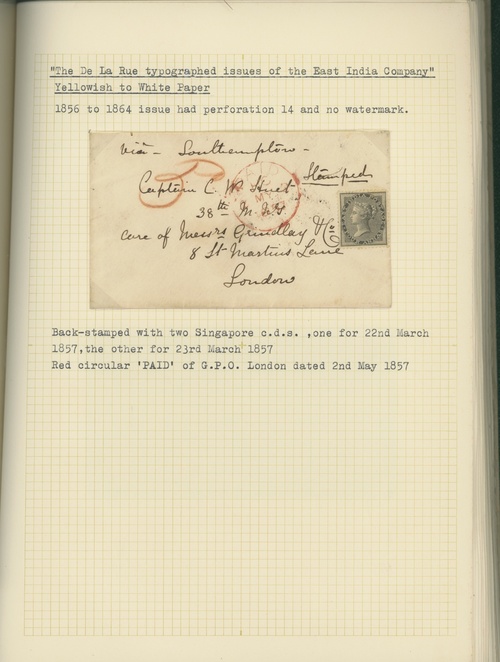 "The De La Rue typographed issues of the East India Company"
Yellowish to White Paper
1856 to 1864 issue had perforation 14 and no watermark.
via - Southampton -
Stamped
Captain C. W.
38th M. N. I.
care of Messrs Grindlay & Co
8 St Martins Lane
London
Back-stamped with two Singapore c.d.s. ,one for 22nd March
1857,the other for 23rd March 1857
Red circular 'PAID' of G.P.O. London dated 2nd May 1857